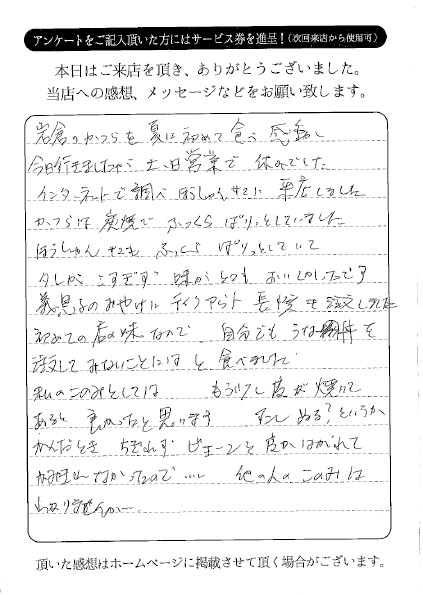 アンケートをご記入頂いた方にはサービス券を進呈！（次回来店から使用可）
本日はご来店を頂き、ありがとうございました。
当店への感想、メッセージなどをお願い致します。
岩倉のかつらを夏に初めて食べ感動し
今日行きましたが土、日営業で休みでした
インターネットで調べほうしゅんサマに来店しました
かつらは炭焼でふっくらぱりっとしていました
ほうしゅんサマもふっくらぱりっとしていて
タレがこすぎず味がとてもおいしかったです
義息子のみやげにテイクアウト長焼を注文しました
初めての店の味なので自分でもうな丼を
注文してみないことにはと食べました
私のこのみとしてはもう少し皮が焼いて
あると良かったと思います すこしぬる？というか
かんだときちぎれずビヨーンと皮がはがれて
かみきれなかったので…、他の人のこのみは
わかりませんが…
頂いた感想はホームページに掲載させて頂く場合がございます。